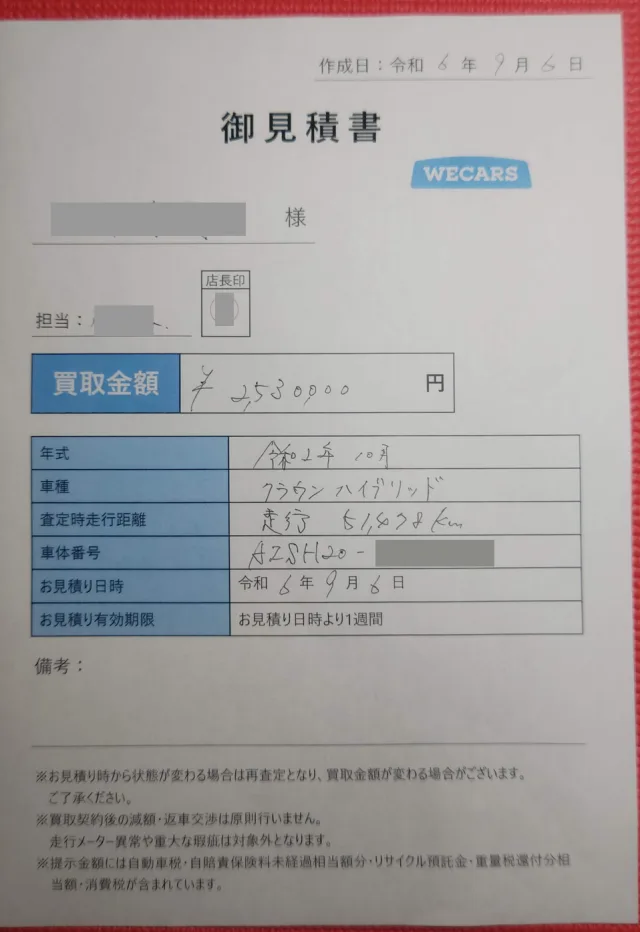 作成日：令和 6 年 9 月 6 日
御見積書
WECARS
様
店長印
担当：
買取金額 ¥ 2,530,000 円
年式 令和2年 10月
車種 クラウン ハイブリッド
査定時走行距離 走行 51,478km
車体番号 AZSH20-
お見積り日時 令和 6 年 9 月 6 日
お見積り有効期限 お見積り日時より1週間
備考：
※お見積り時から状態が変わる場合は再査定となり、買取金額が変わる場合がございます。
ご了承ください。
※買取契約後の減額・返車交渉は原則行いません。
走行メーター異常や重大な瑕疵は対象外となります。
※提示金額には自動車税・自賠責保険料未経過相当額分・リサイクル預託金・重量税還付分相
当額・消費税が含まれています。